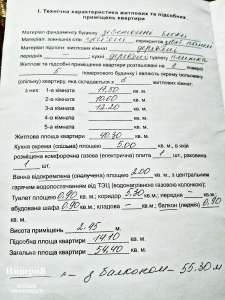 І. Технічна характеристика житлових та підсобних
приміщень квартири
Матеріал фундаменту будинку
Матеріал зовнішніх стін
Матеріал підлоги житлових кімнат
передніх кухні
Житлові та підсобні приміщення квартири розташовані на 2 поверсі
поверхового будинку і являють окрему ізольовану
(спільну) квартиру, яка складається з кімнат житлових
з них: 1-а кімната 17.50 кв. м.
2-а кімната 10.60 кв. м.
3-а кімната 12.20 кв. м.
4-а кімната кв. м.
5-а кімната кв. м.
Житлова площа квартири 40.30 кв. м.
Кухня окрема (спільна) площею 5.00 кв. м., в якій
розміщена комфорочна газова (електрична) плита 1 шт., раковина
1 шт.
Ванна відокремлена (сполучена) площею 2.00 кв. м. з центральним
гарячим водопостачанням від ТЭЦ (водонагрівною газовою колонкою);
Туалет площею 0.90 кв. м.; коридор 5.30 кв. м.; передня — кв. м.;
вбудована шафа 0.90 кв. м.; кладова — кв. м.; балкон 0.90
кв. м.
Висота приміщень 2.45 м.
Підсобна площа квартири 14.10 кв. м.
Загальна площа квартири 54.40 кв. м.
з балконом — 55.30 м